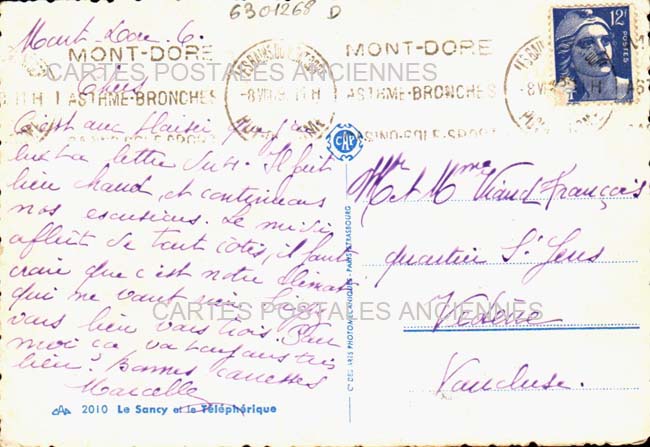 6301268 D
Mont-Dore 6.
MONT-DORE
ASTHME-BRONCHES
MONT-DORE
ASTHME-BRONCHES
12F
POSTES
CARTES POSTALES ANCIENNES
Chers
C'est avec plaisir que j'ai
lu ta lettre du 4. Il fait
bien chaud, et continuons
nos excursions. Le midi
afflue de tout cotés, il faut
croire que c'est notre climat
qui me vaut rien.
vous bien vous trois. Pour
moi ça va toujours très
bien. Bonnes caresses
Marcelle
CAP
Mr et Mme Viaud François
quartier St Jens
Vedène
Vaucluse.
CARTES POSTALES ANCIENNES
CIE DES ARTS PHOTOMÉCANIQUES - PARIS-STRASBOURG
2010 Le Sancy et le Téléphérique